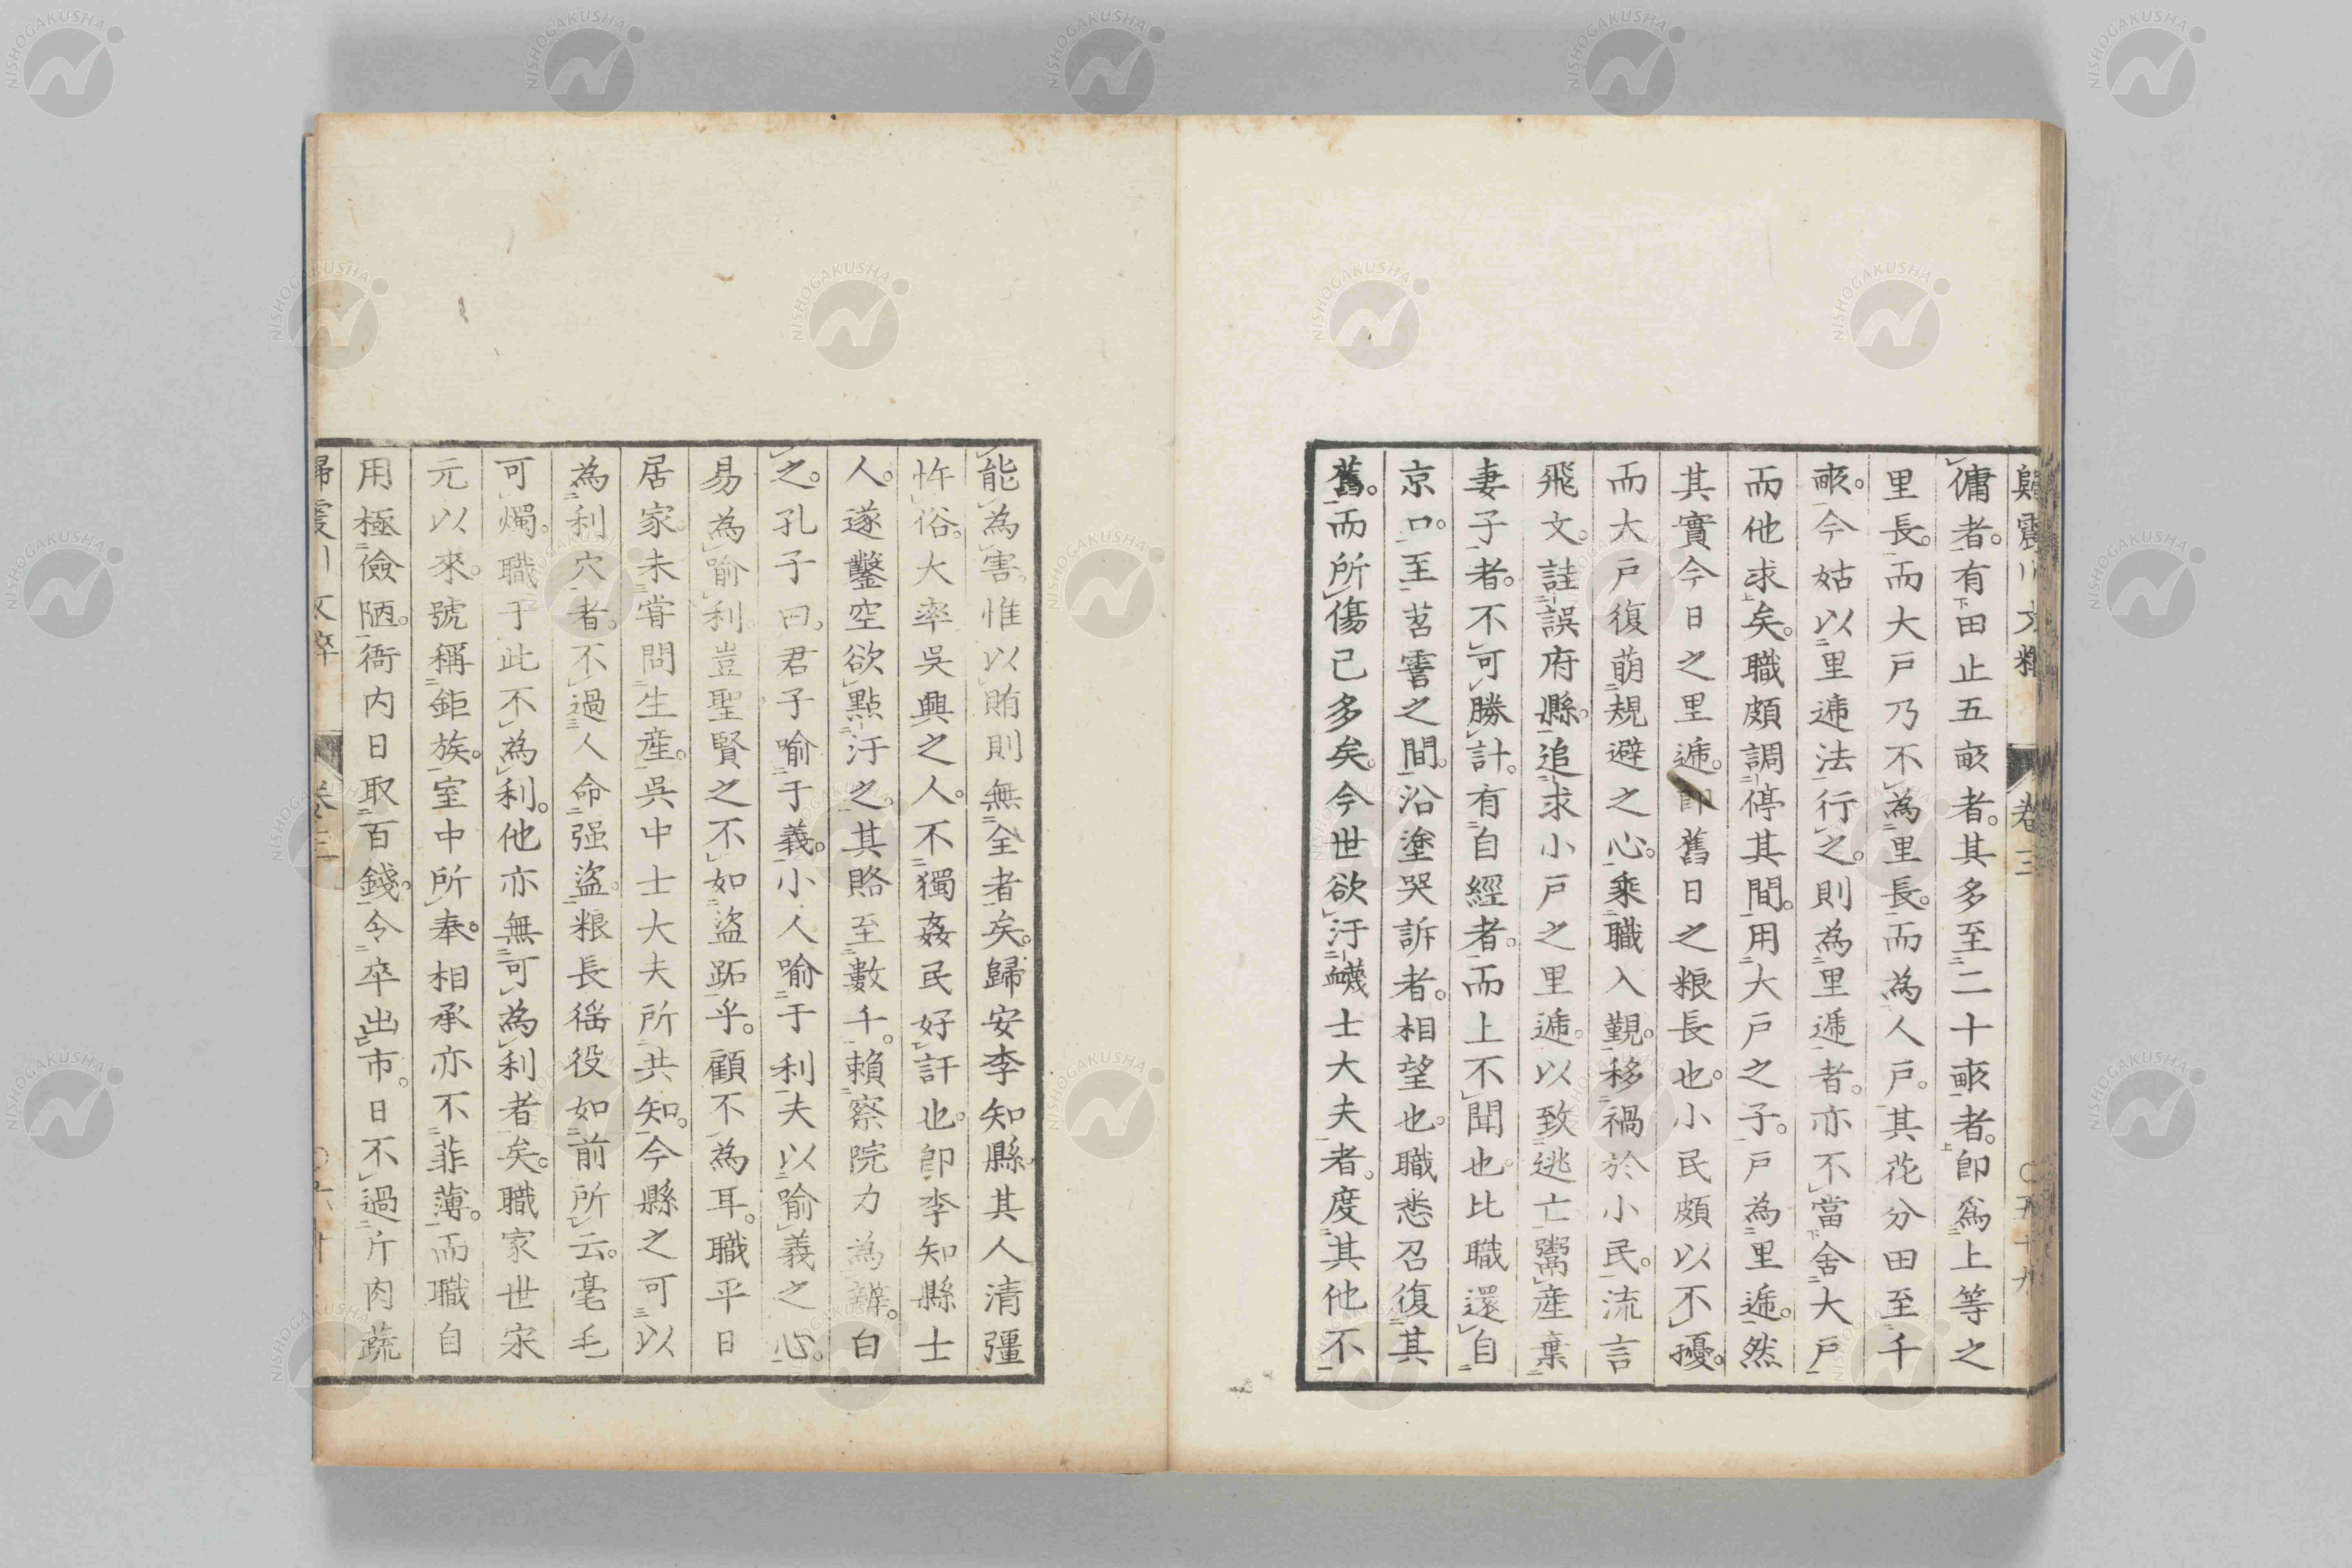 傭者。有田止五畝者。其多至二十畝者。卽爲上等之
里長。而大戸乃不為里長。而為人戸。其花分田至千
畝。今姑以里逓法行之。則為里逓者。亦不當舍大戸
而他求矣。職頗調停其間。用大戸之子。戸為里逓。然
其實今日之里逓。卽舊日之粮長也。小民頗以不擾。
而大戸復萌規避之心。乘職入覲。移禍於小民。流言
飛文。詿誤府縣。追求小戸之里逓。以致逃亡鬻產棄
妻子者。不可勝計。有自經者。而上不聞也。比職還自
京口。至苕霅之間。沿塗哭訴者。相望也。職悉召復其
舊。而所傷已多矣。今世欲汙衊士大夫者。度其他不
能為害。惟以賄則無全者矣。歸安李知縣其人清彊
忤俗。大率吳興之人。不獨姦民好訐也。卽李知縣士
人。遂鑿空欲點汙之。其賂至數千。賴察院力為辨。白
之。孔子曰。君子喻于義。小人喻于利。夫以喻義之心。
易為喻利。豈聖賢之不如盜跖乎。顧不為耳。職平日
居家未嘗問生産。吳中士大夫所共知。今縣之可以
為利穴者。不過人命强盜。粮長徭役如前所云。毫毛
可燭。職于此不為利。他亦無可為利者矣。職家世宋
元以來。號稱鉅族。室中所奉。相承亦不菲薄。而職自
用極儉陋。衙内日取百錢。令卒出市。日不過斤肉蔬
卷三